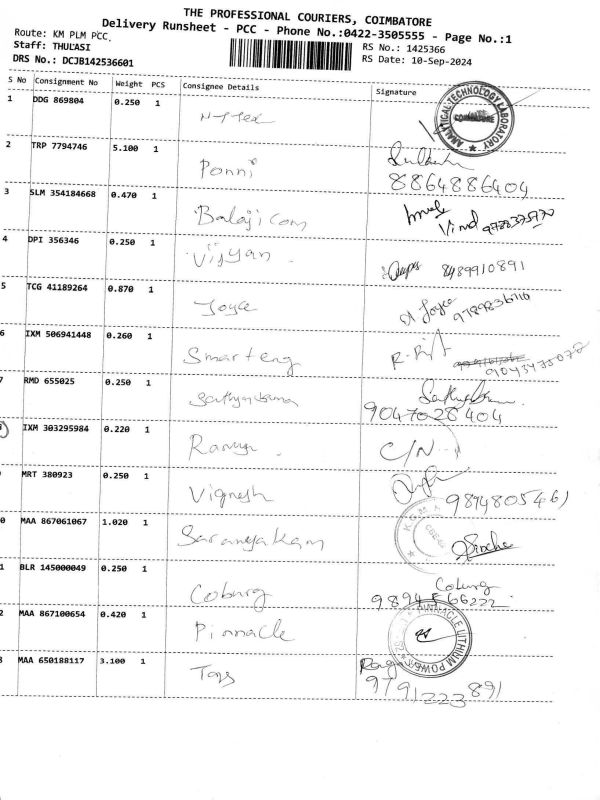 THE PROFESSIONAL COURIERS, COIMBATORE
Delivery Runsheet - PCC - Phone No.:0422-3505555 - Page No.:1
Route: KM PLM PCC.
Staff: THULASI
DRS No.: DCJB142536601
RS No.: 1425366
RS Date: 10-Sep-2024
S No Consignment No Weight PCS Consignee Details Signature
1 DDG 869804 0.250 1
ANALYTICAL TECHNOLOGY LABORATORY COIMBATORE
2 TRP 7794746 5.100 1 Ponni
8864886404
3 SLM 354184668 0.470 1 Balaji com
4 DPI 356346 0.250 1 Vijyan
8489910891
5 TCG 41189264 0.870 1 Joyce
Joyce 9789836116
6 IXM 506941448 0.260 1 Smart eng
7 RMD 655025 0.250 1
9047028404
IXM 303295984 0.220 1 C/N
MRT 380923 0.250 1 Vignesh
9894805461
0 MAA 867061067 1.020 1
1 BLR 145000049 0.250 1 Coburg
Coburg
2 MAA 867100654 0.420 1 Pinnacle
PINNACLE LITHIUM POWER
3 MAA 650188117 3.100 1 Toys
9791223891